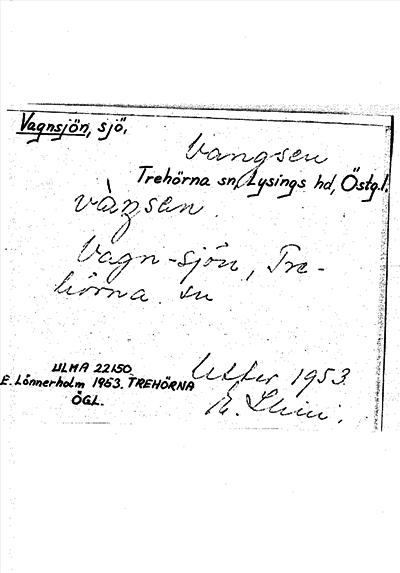 Vagnsjön, sjö.
Vangsen
Trehörna sn, Lysings hd, Östg.l.
vàŋsen.
Vagn-sjön, Tre-
hörna sn
ULMA 22150.
E. Lönnerholm 1953. TREHÖRNA
ÖGL.
1953.
R.